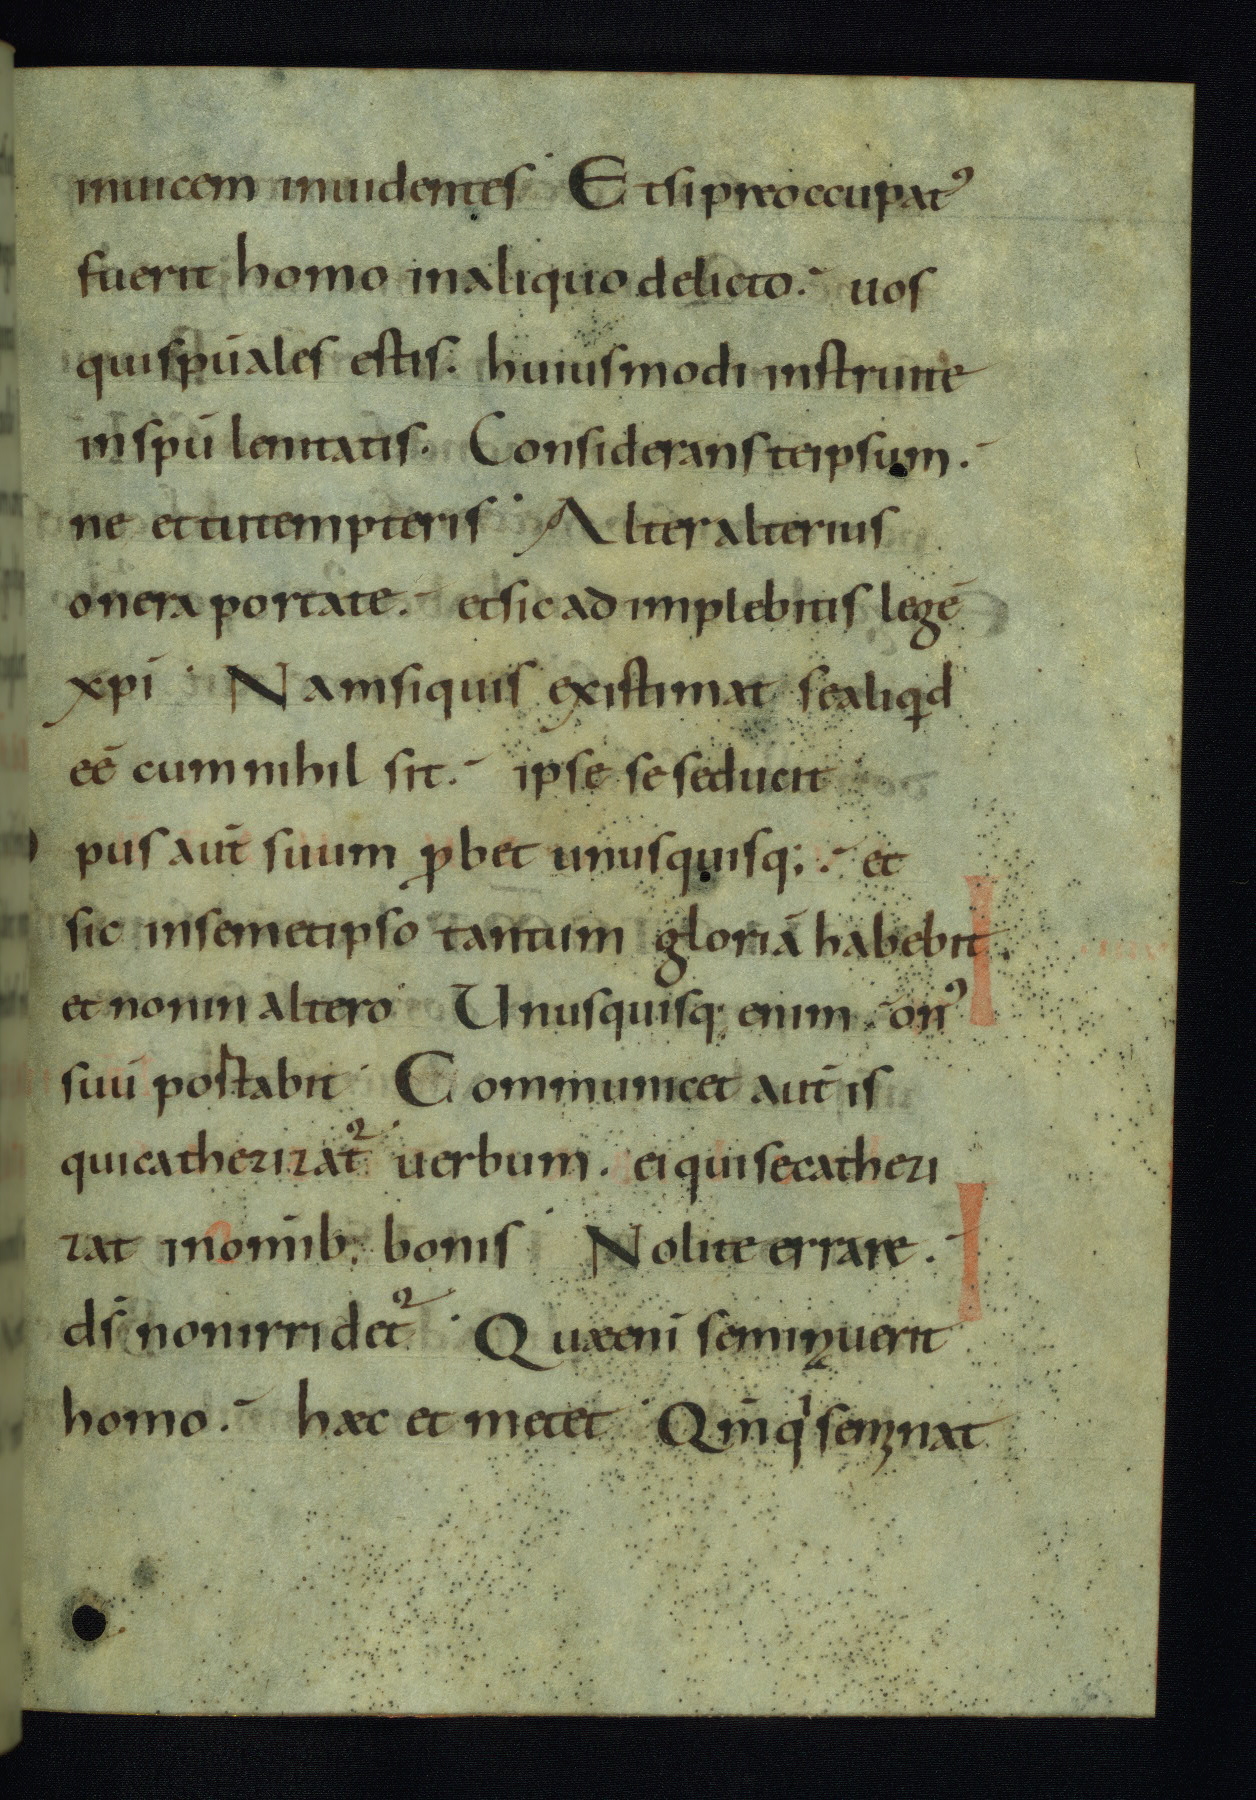 inuicem inuidentes · Et si preoccupatꝰ
fuerit homo in aliquo delicto · uos
qui spūales estis · huiusmodi instruite
in spū lenitatis · Considerans teipsum ·
ne et tu tempteris · Alter alterius
onera portate · et sic adimplebitis legē
xpī · Nam si quis existimat se aliqid
eē cum nihil sit · ipse se seducit
pus aut̄ suum ꝓbet unusquisq; · et
sic in semetipso tantum gloriā habebit ·
et non in altero · Unusquisq; enim · on̄ꝰ
suū postabit · Communicet aut̄ is
qui catherizat̄ uerbum · ei qui se catheri
zat in om̄ib; bonis · Nolite errare ·
ds̄ non irridet̄ · Quae enī seminauerit
homo · haec et metet · Qm̄ qi seminat